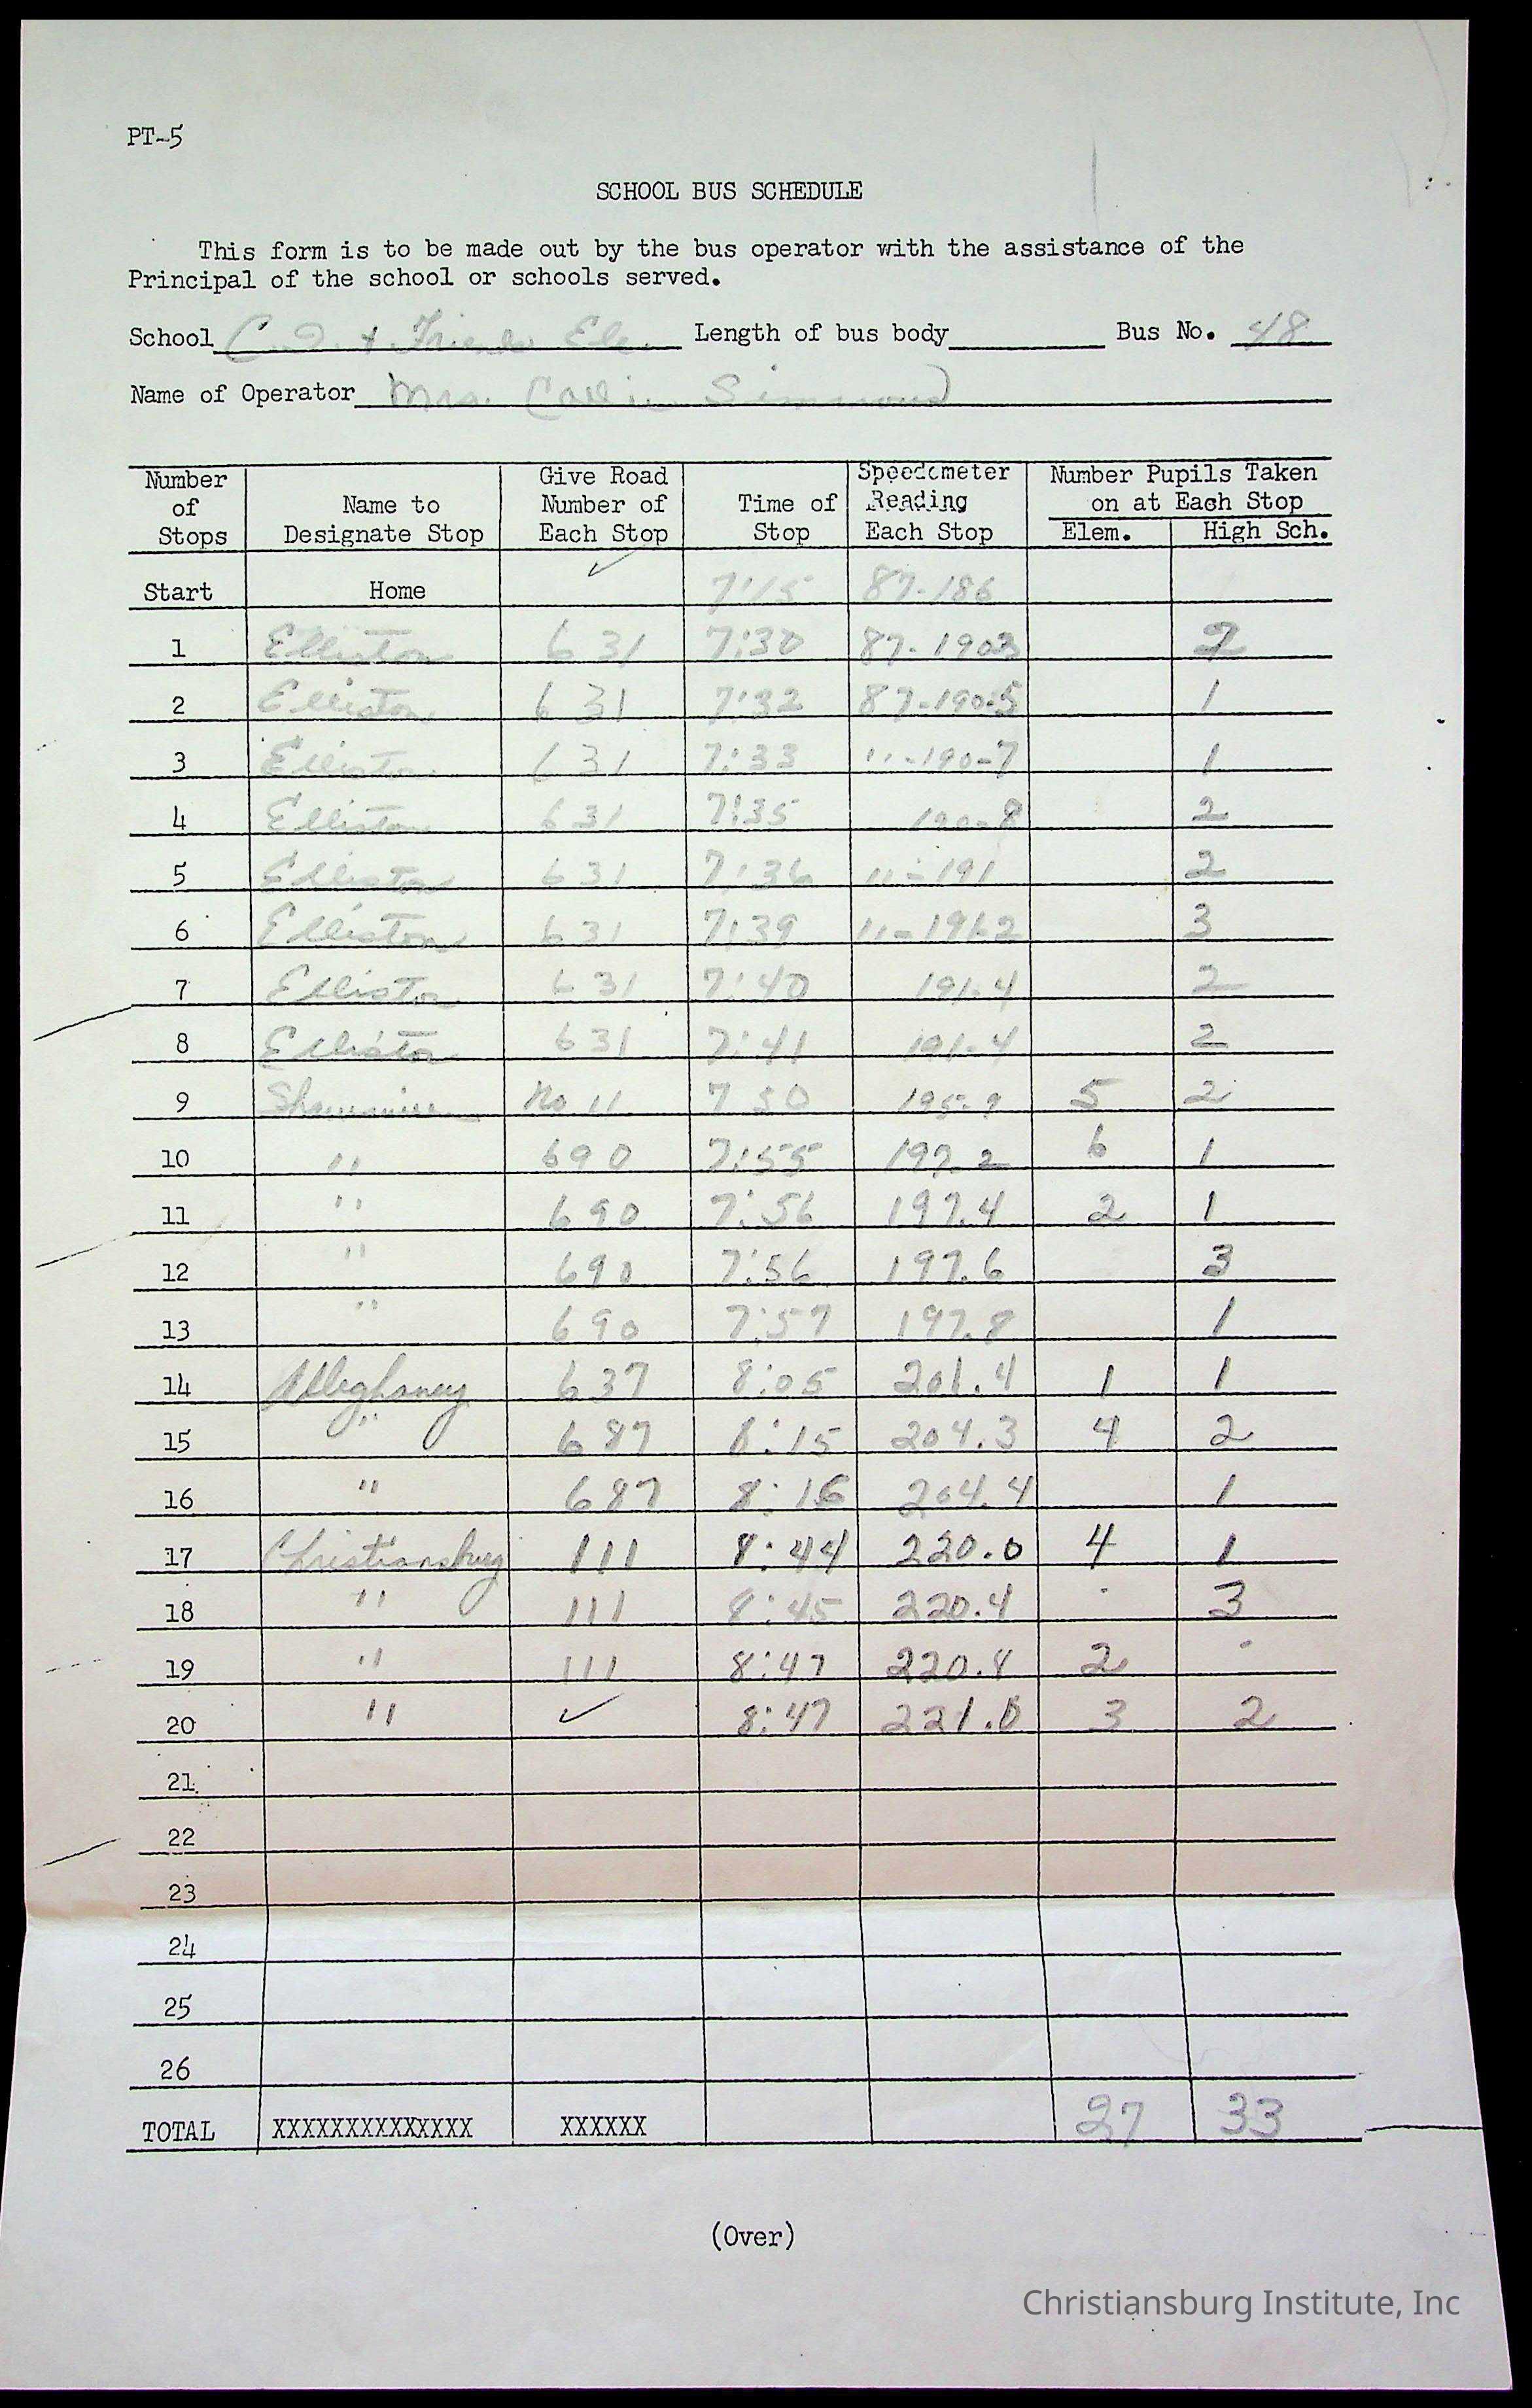 PT-5
SCHOOL BUS SCHEDULE
This form is to be made out by the bus operator with the assistance of the
Principal of the school or schools served.
School C. I. + Friends Ele. Length of bus body Bus No. 48
Name of Operator Mrs. Simmons
Number of Stops Name to Designate Stop Give Road Number of Each Stop Time of Stop Speedometer Reading Each Stop Number Pupils Taken on at Each Stop Elem. High Sch.
Start Home ✓ 7:15 87-186
1 Elliston 631 7:30 87-1903 2
2 Elliston 631 7:32 87-190-5 1
3 Elliston 631 7:33 "-190-7 1
4 Elliston 631 7:35 190-8 2
5 Elliston 631 7:36 "-191 2
6 Elliston 631 7:39 "-191-2 3
7 Elliston 631 7:40 191-4 2
8 Elliston 631 7:41 191-4 2
9 No 11 7 50 195-9 5 2
10 " 690 7:55 197.2 6 1
11 " 690 7:56 197.4 2 1
12 " 690 7:56 197.6 3
13 " 690 7:57 197.8 1
14 Alleghaney 637 8:05 201.4 1 1
15 " 687 8:15 204.3 4 2
16 " 687 8:16 204.4 1
17 Christiansburg 111 8:44 220.0 4 1
18 " 111 8:45 220.4 3
19 " 111 8:47 220.8 2
20 " ✓ 8:47 221.0 3 2
21
22
23
24
25
26
TOTAL XXXXXXXXXXXXXX XXXXXX 27 33
(Over)
Christiansburg Institute, Inc